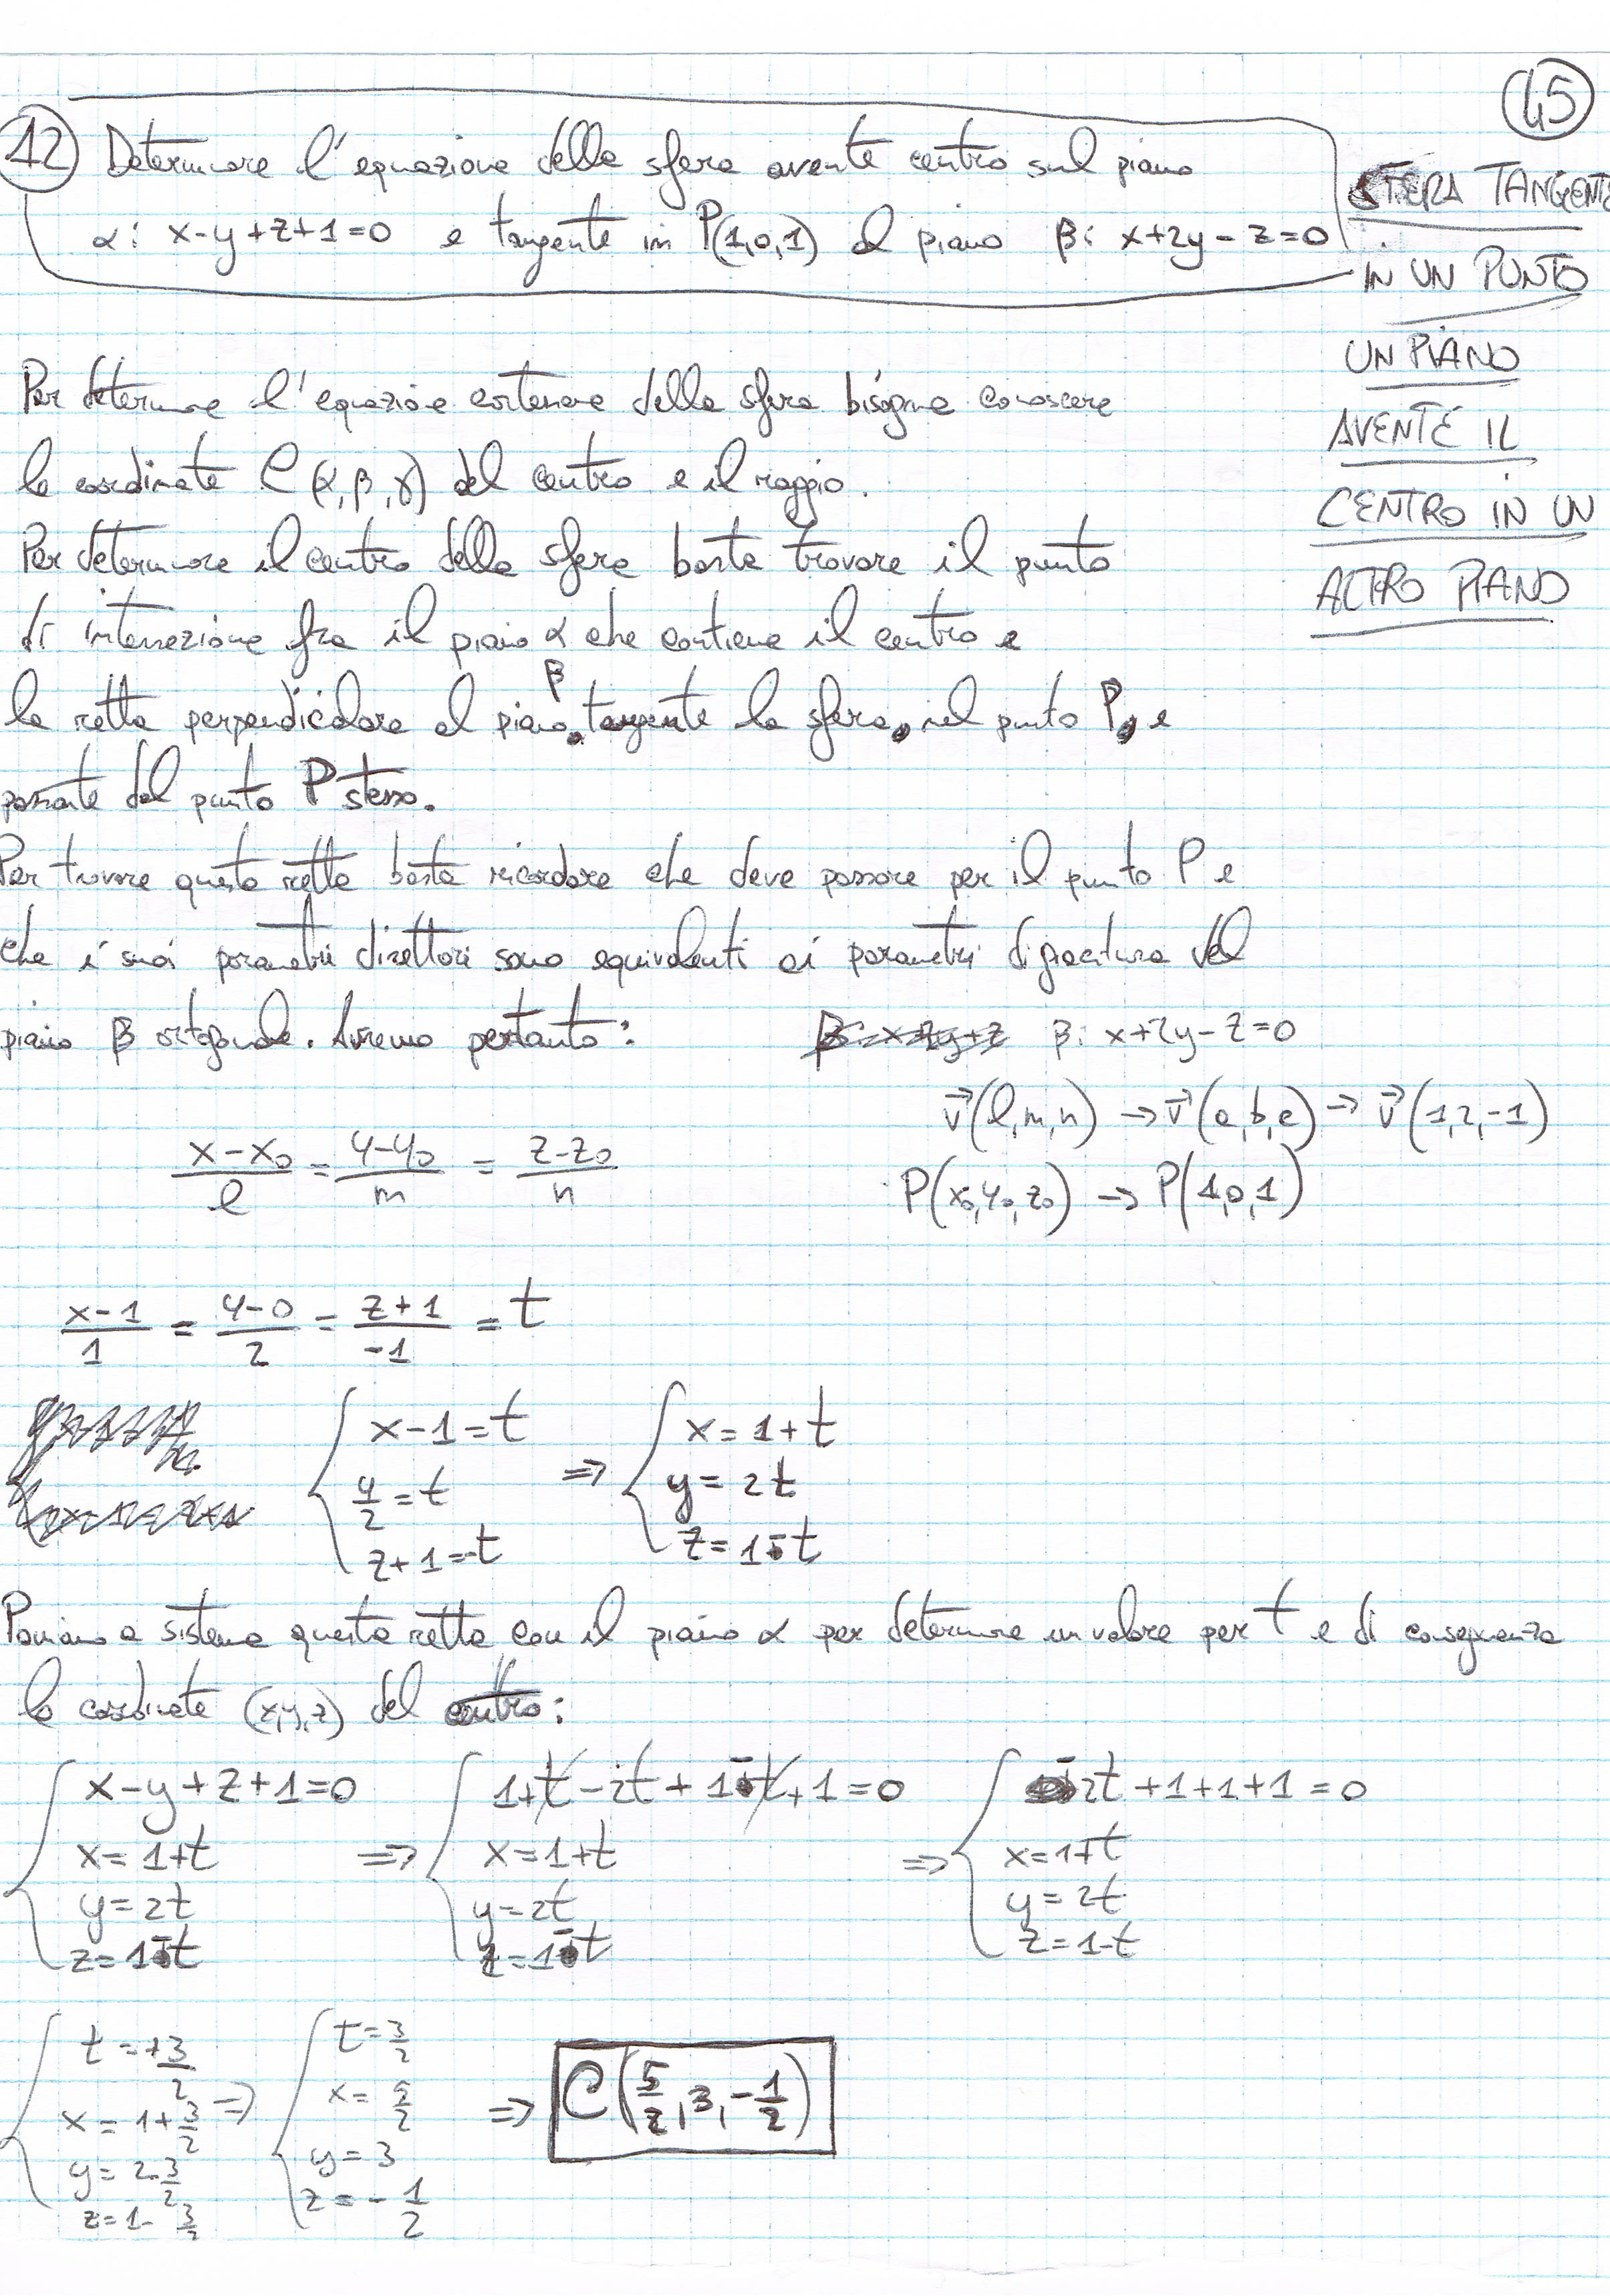 45
12 Determinare l'equazione della sfera avente centro sul piano
α: x-y+z+1=0 e tangente in P(1,0,1) al piano β: x+2y-z=0
SFERA TANGENTE
IN UN PUNTO
UN PIANO
AVENTE IL
CENTRO IN UN
ALTRO PIANO
Per determinare l'equazione cartesiana della sfera bisogna conoscere
le coordinate C(α,β,γ) del centro e il raggio.
Per determinare il centro della sfera basta trovare il punto
di intersezione fra il piano α che contiene il centro e
la retta perpendicolare al piano β tangente la sfera nel punto P, e
passante dal punto P stesso.
Per trovare questa retta basta ricordare che deve passare per il punto P e
che i suoi parametri direttori sono equivalenti ai parametri di giacitura del
piano β ortogonale. Avremo pertanto: β: x+2y-z=0
v⃗(l,m,n) → v⃗(a,b,c) → v⃗(1,2,-1)
(x-x₀)/l = (y-y₀)/m = (z-z₀)/n
P(x₀,y₀,z₀) → P(1,0,1)
(x-1)/1 = (y-0)/2 = (z+1)/-1 = t
{ x-1=t ⇒ { x=1+t
y/2=t y=2t
z+1=-t z=1-t
Poniamo a sistema questa retta con il piano α per determinare un valore per t e di conseguenza
le coordinate (x,y,z) del centro:
{ x-y+z+1=0 ⇒ { 1+t-2t+1-t+1=0 ⇒ { -2t+1+1+1=0
x=1+t x=1+t x=1+t
y=2t y=2t y=2t
z=1-t z=1-t z=1-t
{ t=+3/2 ⇒ { t=3/2 ⇒ C(5/2,3,-1/2)
x=1+3/2 x=5/2
y=2·3/2 y=3
z=1-3/2 z=-1/2